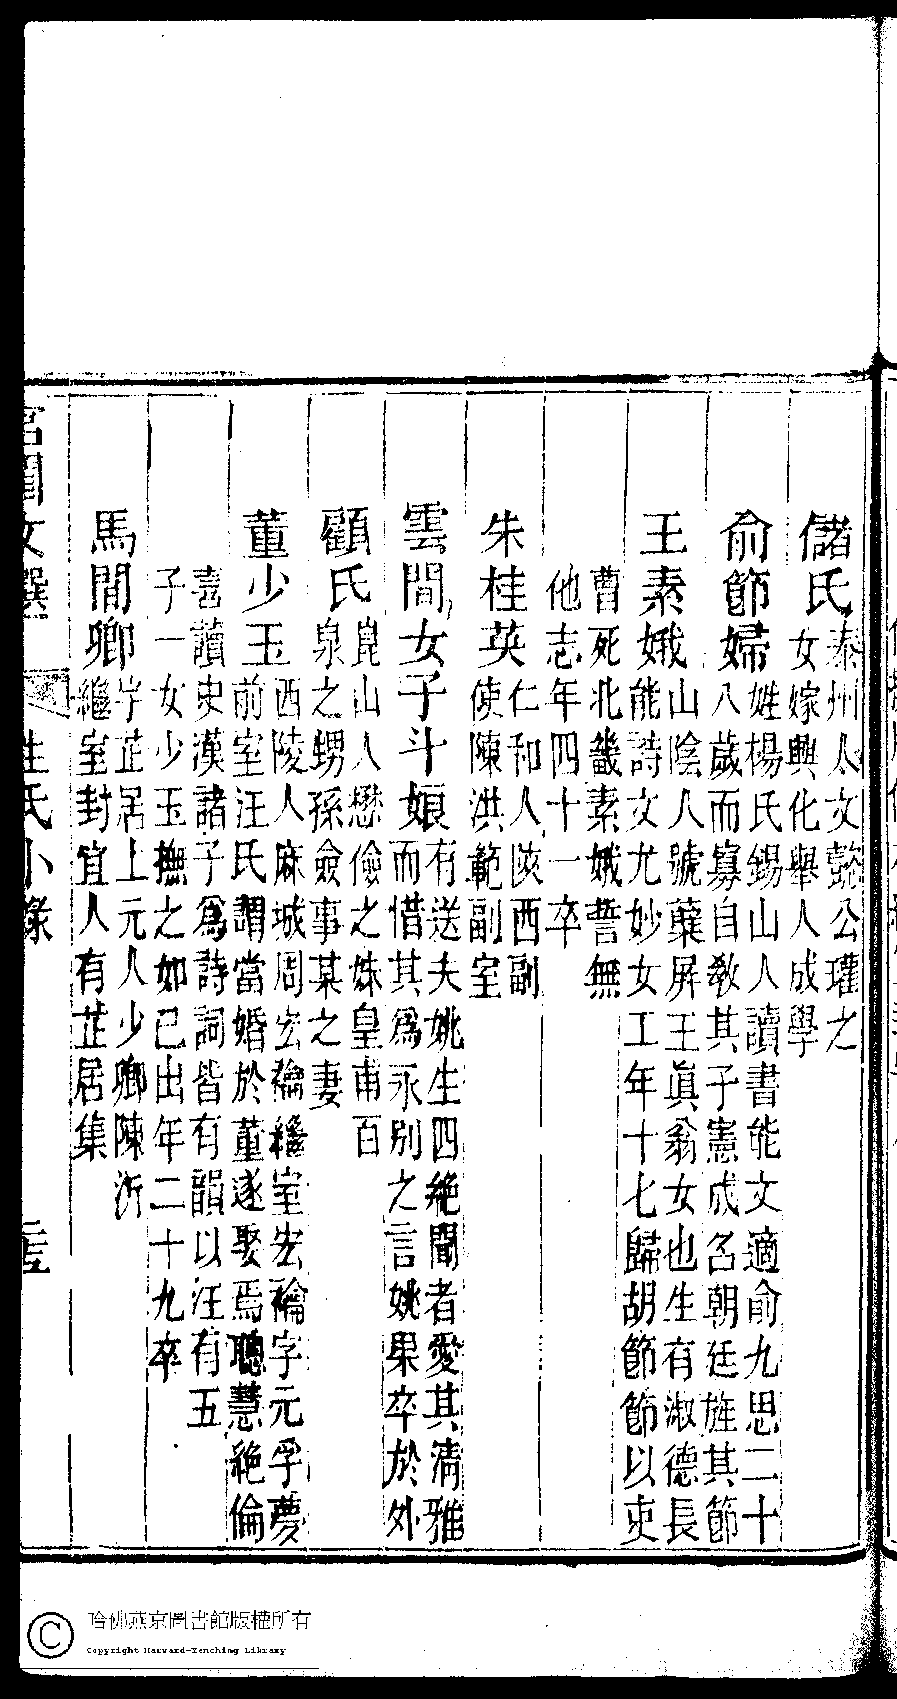 儲氏 泰州人文懿公瓘之
女嫁興化舉人成學
俞節婦 姓楊氏錫山人讀書能文適俞九思二十
八歲而寡自敎其子憲成名朝廷旌其節
王素娥 山陰人號蘗屏王眞翁女也生有淑德長
能詩文尤妙女工年十七歸胡節節以吏
曹死北畿素娥誓無
他志年四十一卒
朱桂英 仁和人陝西副
使陳洪範副室
雲間女子斗娘 有送夫姚生四絶聞者愛其清雅
而惜其爲永别之言姚果卒於外
顧氏 崑山人懋儉之妹皇甫百
泉之甥孫僉事某之妻
董少玉 西陵人麻城周宏禴繼室宏禴字元孚夢
前室汪氏謂當婚於董遂娶焉聰慧絶倫
喜讀史漢諸子爲詩詞皆有韻以汪有五
子一女少玉撫之如己出年二十九卒
馬閒卿 字芷居上元人少卿陳沂
繼室封宜人有芷居集
宮閨文選 姓氏小錄
哈佛燕京圖書館版權所有
Copyright Harvard-Yenching Library